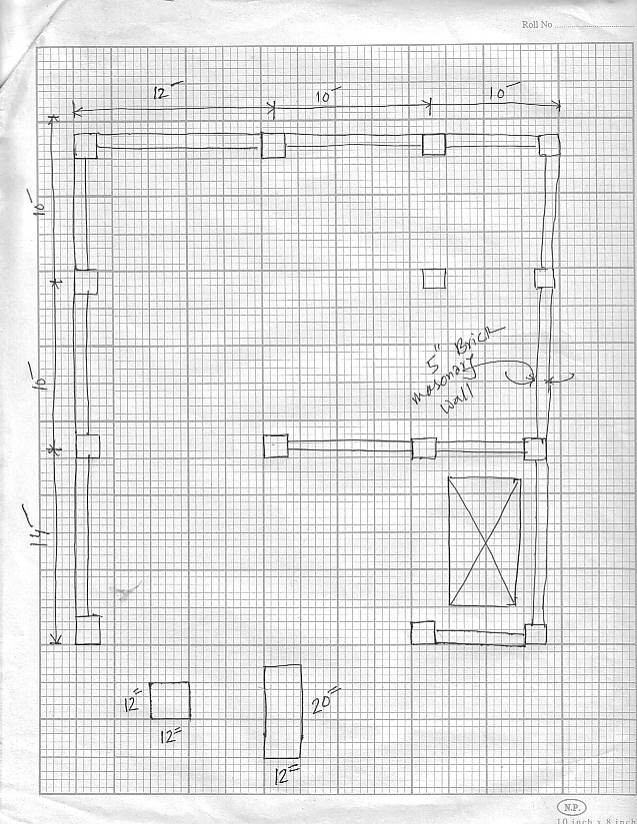 Roll No
12'
10'
10'
10'
10'
14'
5" Brick
masonary
wall
12"
12"
20"
12"
N.P.
10 inch x 8 inch